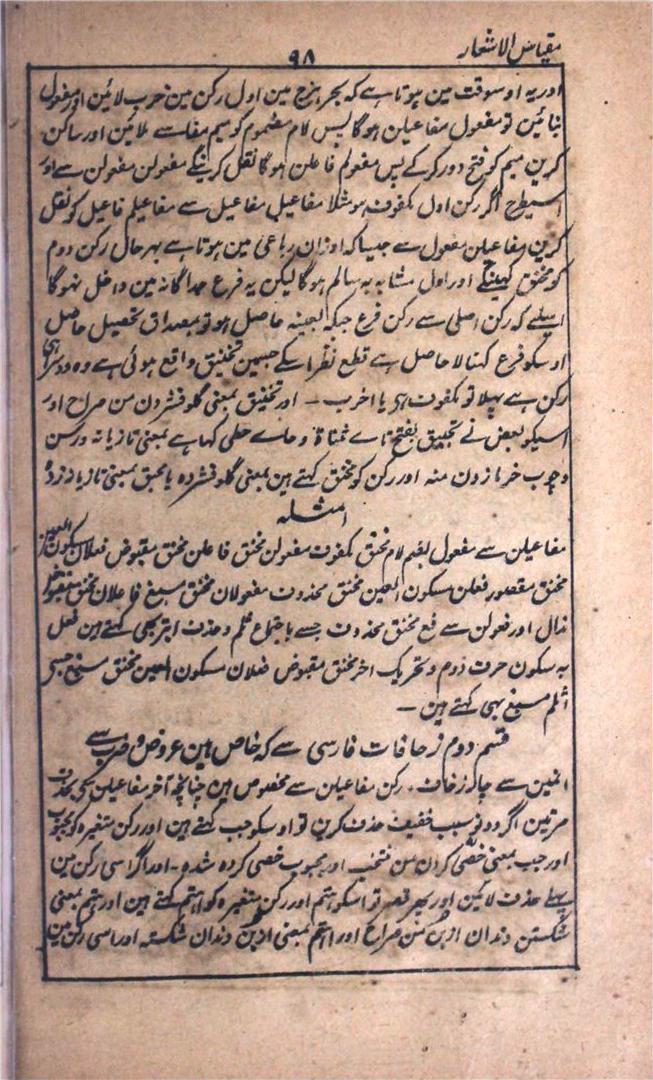 مقیاس الاشعار
۹۸
اور یہ اوسوقت مین ہوتا ہے کہ بحر ہزج مین اول رکن مین خرب لائین اور مفعول
بنائین تو مفعول مفاعیلن ہوگا پس لام مضموم کو میم مفا سے ملائین اور ساکن
کرین میم کو فتح دور کر کے پس مفعولم فاعلن ہوگا نقل کرینگے مفعولن مفعولن سے اور
اسیطرح اگر رکن اول مکفوف ہو مثلا مفاعیل مفاعیل سے مفاعیلم فاعیل کو نقل
کرین مفاعیلن مفعول سے جیسا کہ اوزان رباعی مین ہوتا ہے بہر حال رکن دوم
کو مخنق کہینگے اور اول مشابہ بہ سالم ہوگا لیکن یہ فرع جداگانہ مین داخل نہوگا
اسلیے کہ رکن اصلی سے رکن فرع جبکہ بعینہ حاصل ہو تو بمصداق تحصیل حاصل
اوسکو فرع کہنا لا حاصل ہے قطع نظر اسکے جسمین تخنیق واقع ہوئی ہے وہ دوسرا ہی
رکن ہے پہلا تو مکفوف ہی یا اخرب ـ اور تخنیق بمعنی گلو فشردن من صراح اور
اسیکو بعض نے تحبیق بفتح تاے مثناۃ و حاے حطی کہا ہے بمعنی تازیانہ و رسن
و چوب خرما زدن منہ اور رکن کو مخنق کہتے ہین بمعنی گلو فشردہ یا محبق بمعنی تازیانہ زدہ
امثلہ
مفاعیلن سے مفعول بضم لام مخنق مکفوف مفعولن مخنق فاعلن مخنق مقبوض فعلان بسکون العین
مخنق مقصور فعلن بسکون العین مخنق محذوف مفعولان مخنق مسبغ فاعلان مخنق مقبوض
مذال اور فعولن سے فع مخنق محذوف جسے باجتماع ثلم و حذف ابتر بھی کہتے ہین فعل
بہ سکون حرف دوم و تحریک آخر مخنق مقبوض فعلان بسکون العین مخنق مسبغ جسے
اثلم مسبغ بھی کہتے ہین ـ
قسم دوم زحافات فارسی سے کہ خاص ہین عروض و ضرب سے
انمین سے چار زحاف رکن مفاعیلن سے مخصوص ہین چنانچہ آخر مفاعیلن کی بحذف
مرتین اگر دو نو سبب خفیف حذف کرین تو اوسکو جب کہتے ہین اور رکن متغیرہ کو مجبوب
اور جب بمعنی خصی کردن من منتخب اور مجبوب خصی کردہ شدہ ـ اور اگر اسی رکن مین
پہلے حذف لائین اور پھر قصر تو اسکو ہتم اور رکن متغیرہ کو اہتم کہتے ہین اور ہتم بمعنی
شکستن دندان از بن من صراح اور اہتم بمعنی از بن دندان شکستہ اور اسی رکن مین